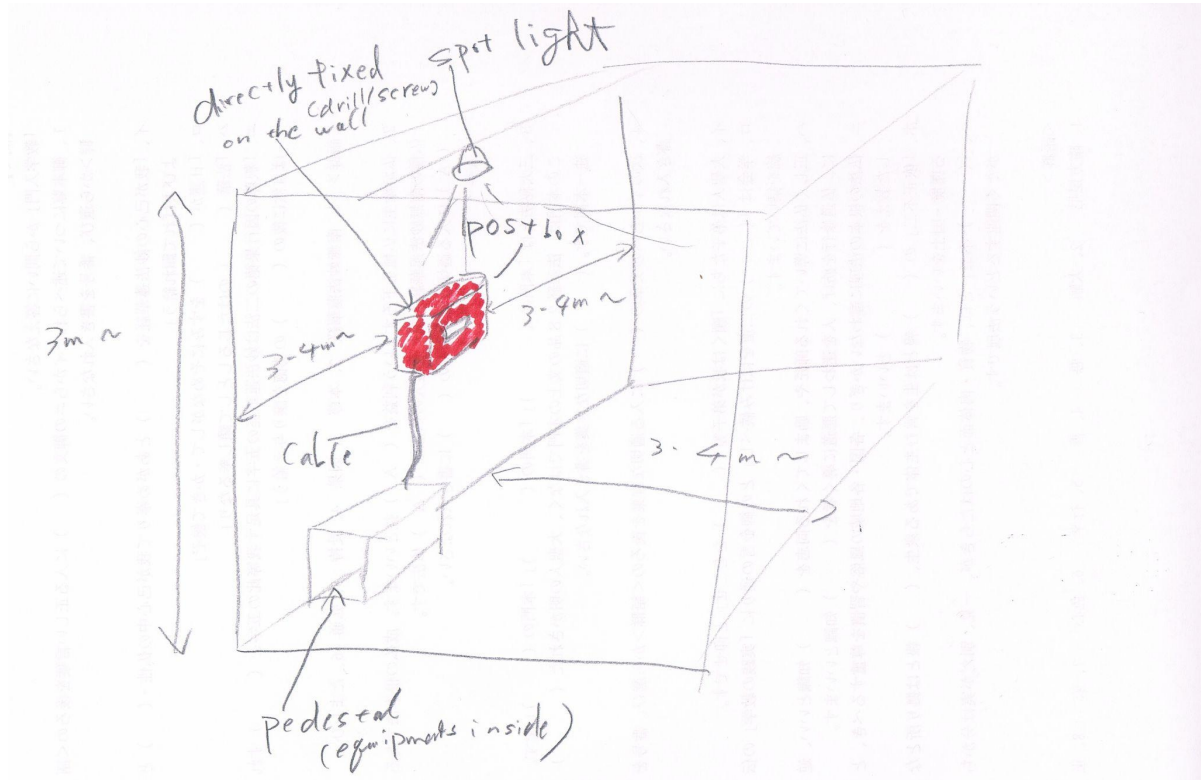 spot light
directly fixed
(drill/screw)
on the wall
postbox
3-4m~
3m~
3-4m~
Cable
3-4m~
pedestal
(equipments inside)